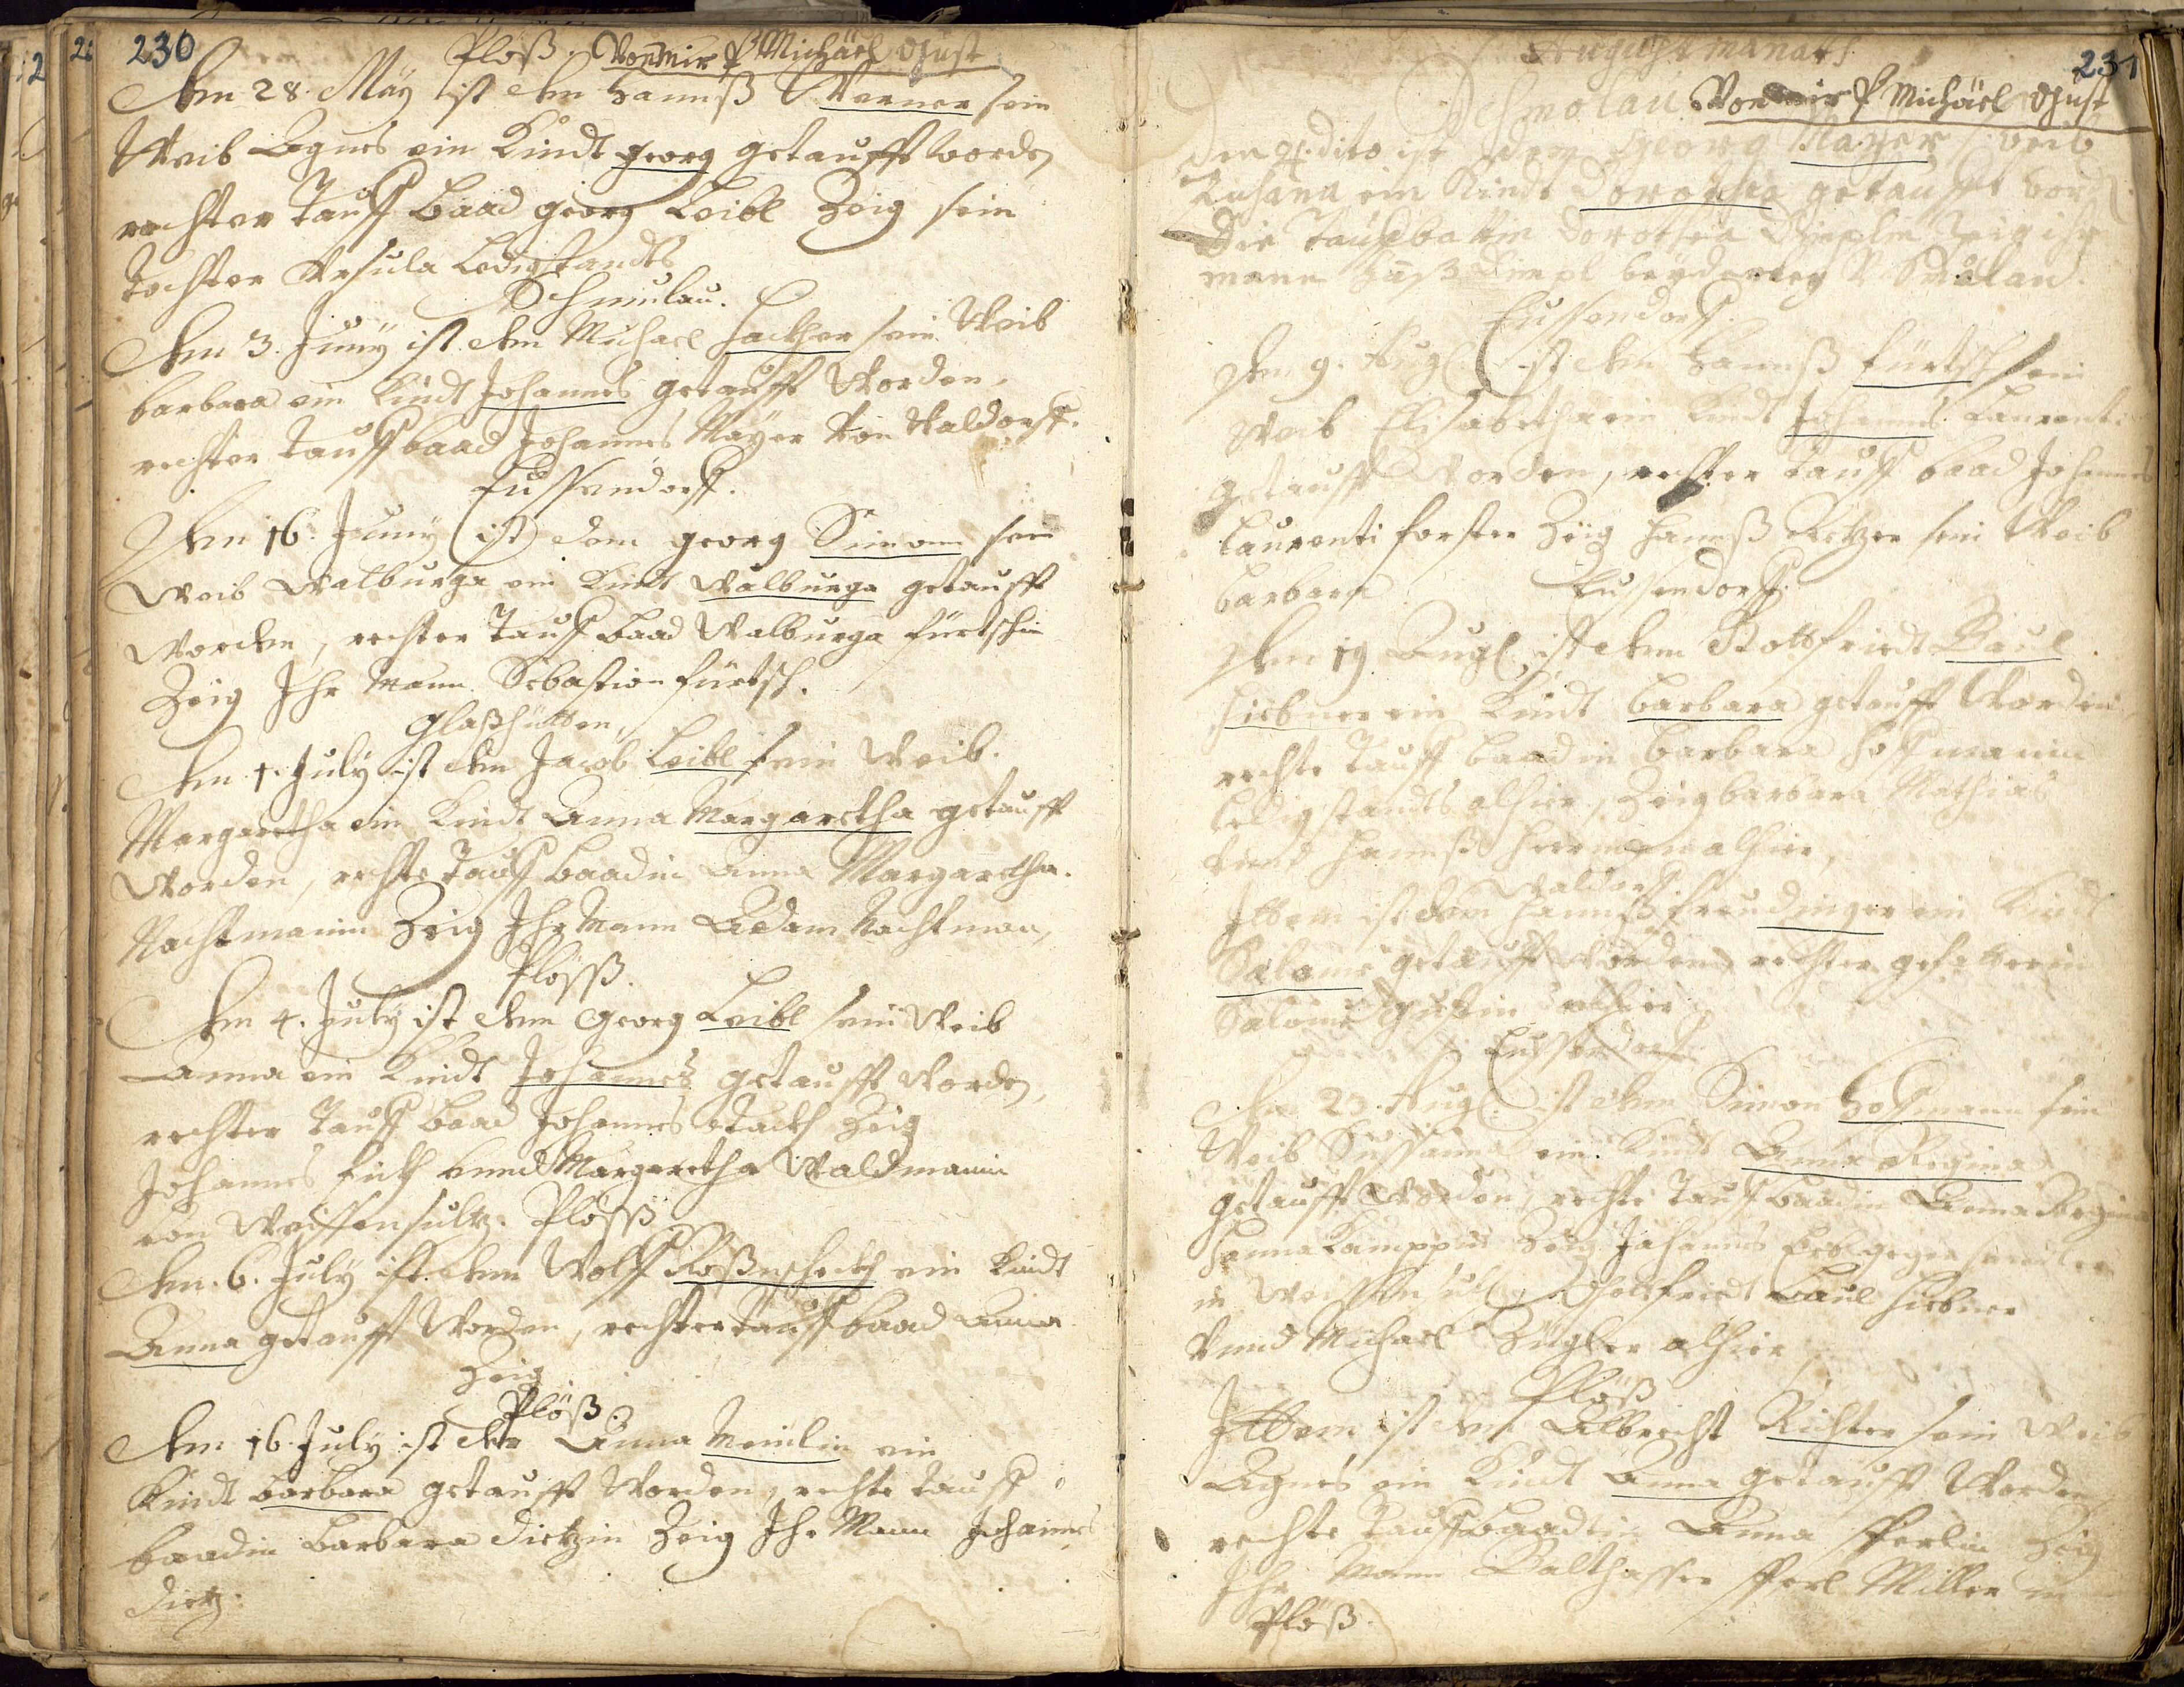 230
Plöß. Von mir P Michäel Gust
Den 28. Maÿ ist dem Hannß Werner sein
Weib Agnes ein Kindt georg getaufft worde
rechter Tauff baad georg Leibl Zeig sein
tochter Ursula Ledigstandts
Schmulau.
Den 3. Junÿ ist dem Michael Hackher sein Weib
barbara ein Kindt Johannes getaufft Worden,
rechter tauff baad Johannes Mayer Von Waldorff.
Eussendorff.
Den 16. Junÿ ist dem georg Simon sein
Weib Walburga ein Kindt Walburga getaufft
Worden, rechter Tauff baad Walburga fürtschin
Zeig Ihr Mann Sebastian fürtsch.
Glaßhütten,
Den 1. July ist dem Jacob Leibl sein Weib.
Margaretha ein Kindt Anna Margaretha getaufft
Worden, rechte Tauff baadin Anna Margaretha.
Nachtmanin Zeig Ihr Mann Adam Nachtman,
Plösß.
Den 4. July ist dem Georg Leibl sein Weib
Anna ein Kindt Johannes getaufft Worden,
rechter Tauff baad Johannes Zeig
Johannes unnd Margaretha Waldmanin
von Weissensultz. Plösß
Den 6. July ist dem Wolff ein Kindt
Anna getaufft Worden, rechter tauff baad Anna
Zeig
Plöß.
Den 16. July ist der Anna Meinlin ein
Kindt barbara getaufft Worden, rechte tauff
baadin barbara dietzin Zeig Ihr Mann Johannes
dietz.
231
August manats
Schmolau Von mir P Michäel Gust
den dito ist dem Georg Mayer s weib
Susana ein Kindt Dorothea getaufft word
Die Taufbattin Dorothea Zeig ihr
mann Hanß
Eussendorff.
Den 9. Aug ist dem Hannß fürtsch sein
Weib Elisabetha ein Kindt Johannes Laurenti
getaufft Worden, rechter tauff baad Johannes
Laurenti forster Zeig Hannß sein Weib
barbara
Eussendorff.
Den 19 Aug ist dem Gottfriedt Paul
Hiebner ein Kindt barbara getaufft Worden,
rechte tauff baadin barbara Hoffmanin
ledig standts alhier, Zeig barbara Mathias
unnd Hannß alhier,
Waldorff.
Ittem ist dem Hannß freudinger ein Kindt
Salome getaufft Worden, rechter gefatterin
Salome Gustin alhier
Eussendorff
Den 23. Aug. ist dem Simon Hoffmann sein
Weib Sussanna ein Kindt Anna Regina
getaufft Worden, rechte tauff baadin Anna Regina
Zeig Johannes
in Weissensultz, Gottfriedt Paul Hiebner
Unnd Michael Ziegler alhier,
Plöß
Ittem ist dem Albrecht Richter sein Weib
Agnes ein Kindt Anna getaufft Worden,
rechte Tauff baadin Anna Zeig
Ihr Mann Balthasser Miller in
Plöß.